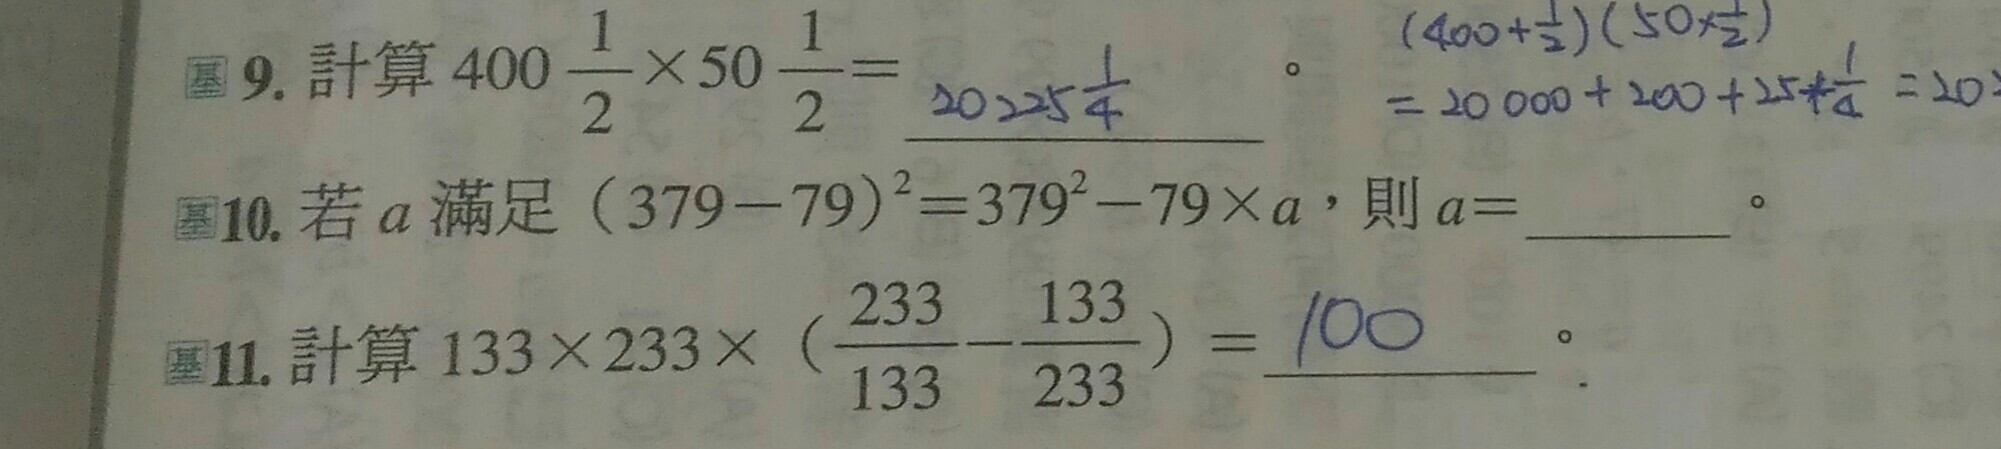 基9. 計算 400 1/2 × 50 1/2 = 20225 1/4 。
(400+1/2)(50+1/2)
=20000+200+25+1/4 =20
基10. 若 a 滿足（379－79）²＝379²－79×a，則 a＝ 。
基11. 計算 133×233×（233/133－133/233）＝ 100 。